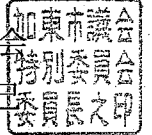 加東市議会
特別委員会
委員長之印